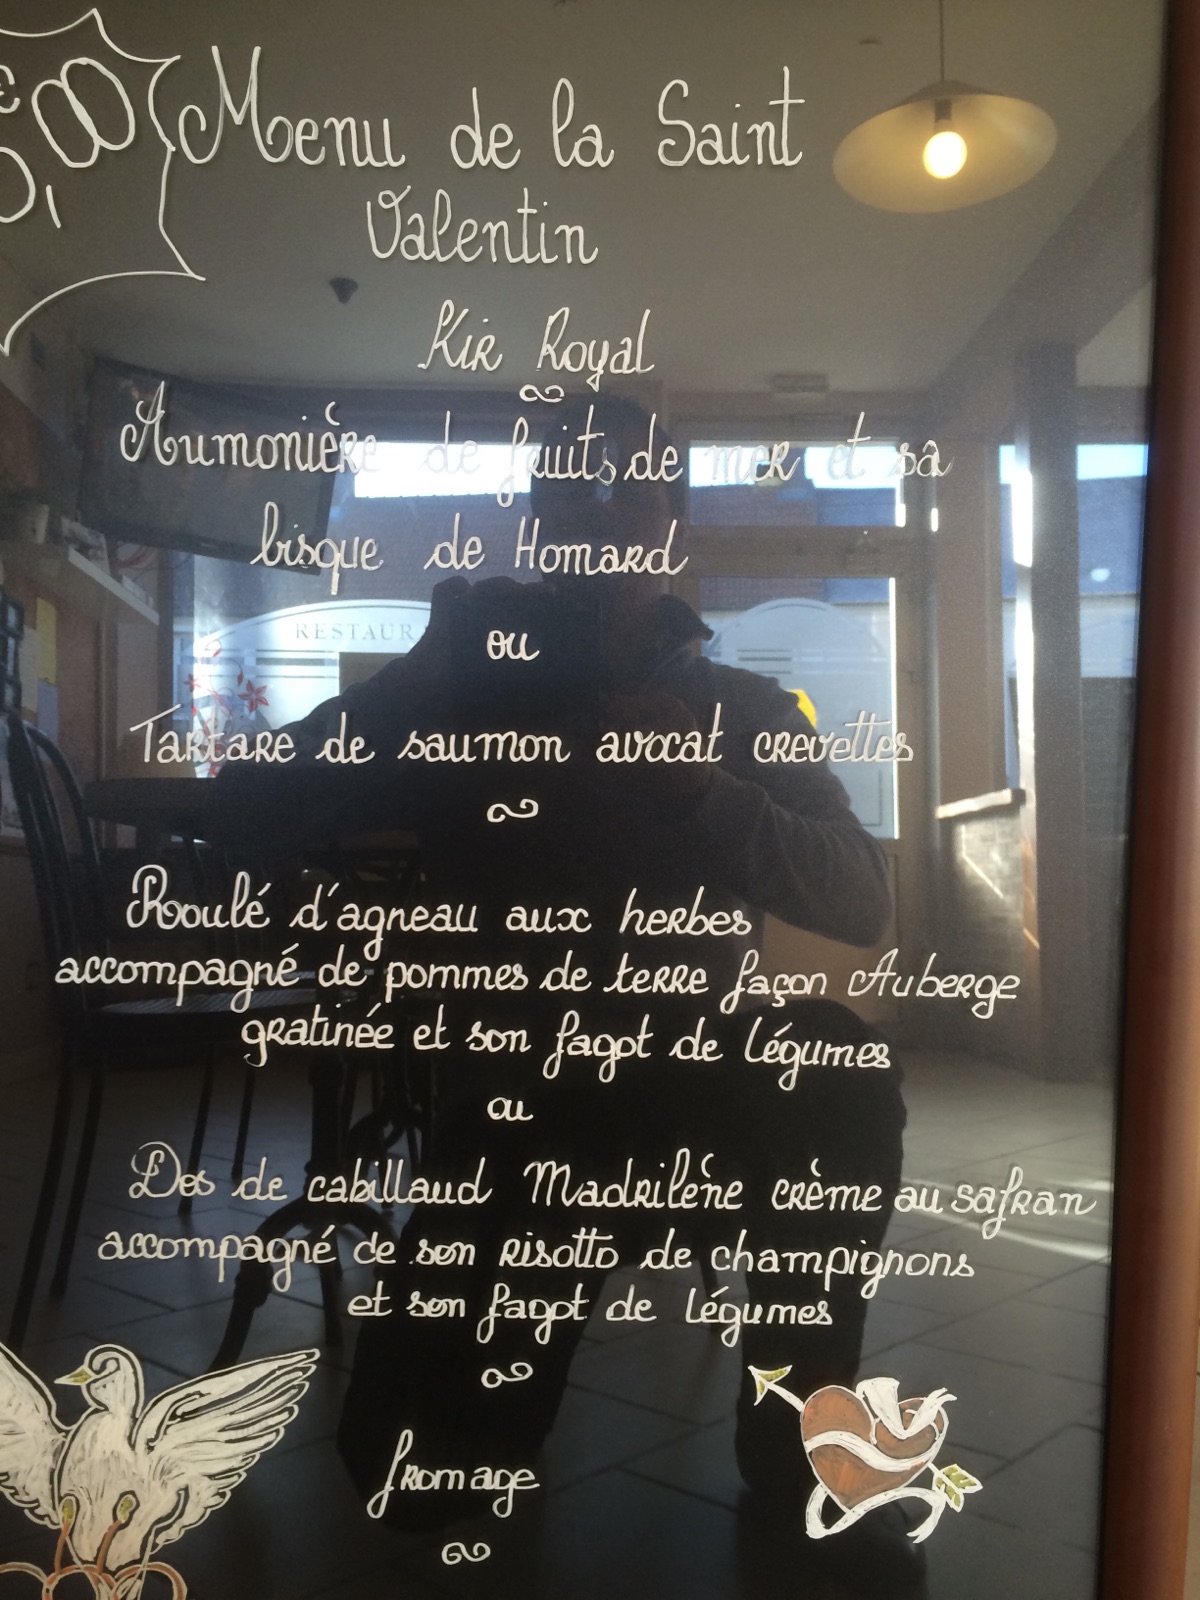 Menu de la Saint
Valentin
Kir Royal
Aumonière de fruits de mer et sa
bisque de Homard
RESTAUR
ou
Tartare de saumon avocat crevettes
Roulé d'agneau aux herbes
accompagné de pommes de terre façon Auberge
gratinée et son fagot de légumes
ou
Dos de cabillaud Madrilène crème au safran
accompagné de son risotto de champignons
et son fagot de légumes
fromage